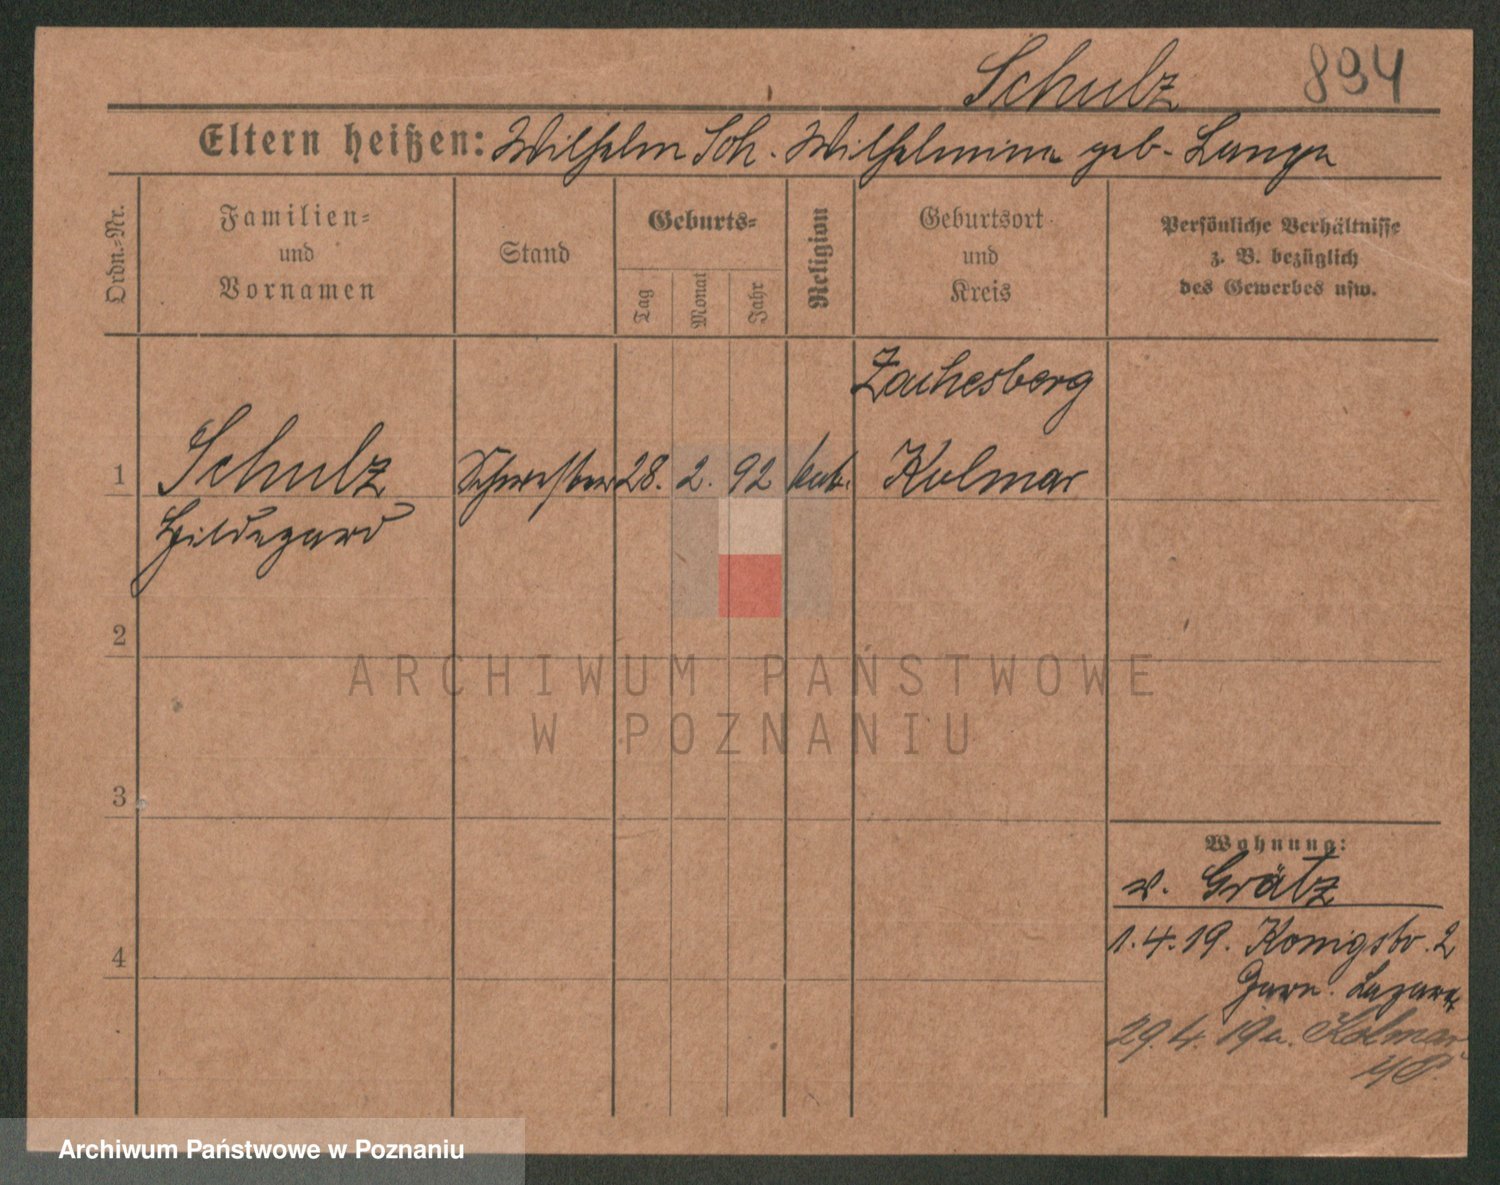 Schulz 894
Eltern heißen: Wilhelm Sch. Wilhelmine geb. Lange
Ordn.-Nr.
Familien-
und
Vornamen
Stand
Geburts-
Tag
Monat
Jahr
Religion
Geburtsort
und
Kreis
Persönliche Verhältnisse
z. B. bezüglich
des Gewerbes usw.
Zachesberg
1 Schulz Schwester 28. 2. 92 kat. Kolmar
Hildegard
2
ARCHIWUM PAŃSTWOWE
W POZNANIU
3
Wohnung:
v. Grätz
1.4.19. Königstr. 2
Garn. Lazaret
4
29.4.19 a. Kolmar
Archiwum Państwowe w Poznaniu